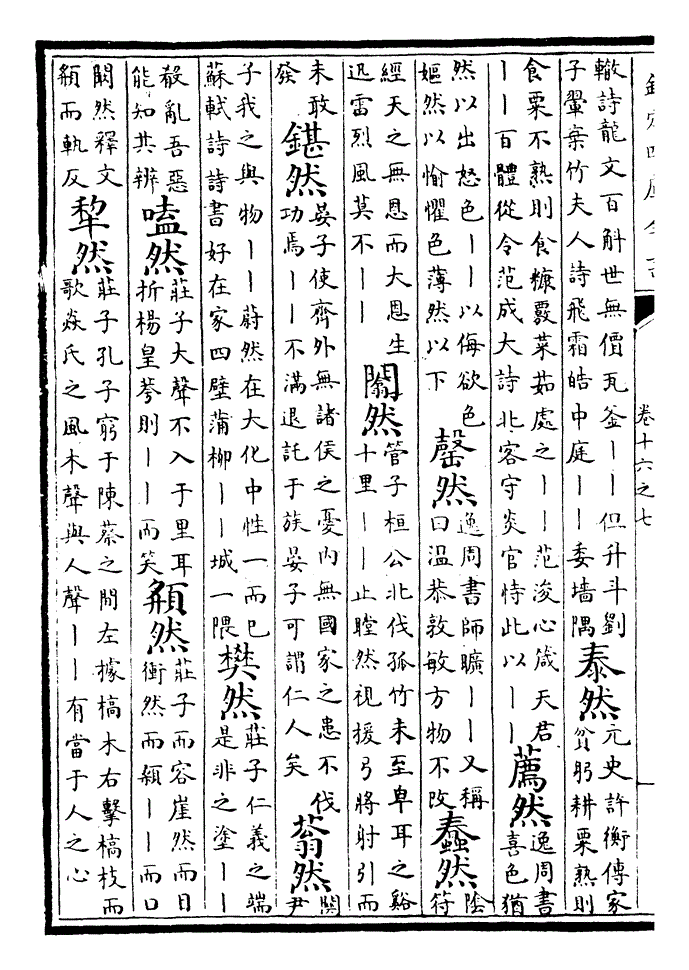 欽定四庫全書
卷十六之七
轍詩龍文百斛世無價瓦釜丨丨但升斗劉
子翬案竹夫人詩飛霜皓中庭丨丨委墻隅
泰然
元史許衡傳家
貧躬耕粟熟則
食粟不熟則食糠覈菜茹處之丨丨范浚心箴天君
丨丨百體從令范成大詩北客守炎官恃此以丨丨
薦然
逸周書
喜色猶
然以出怒色丨丨以侮欲色
嫗然以愉懼色薄然以下
罄然
逸周書師曠丨丨又稱
曰溫恭敦敏方物不改
蠢然
陰
符
經天之無恩而大恩生
迅雷烈風莫不丨丨
闟然
管子桓公北伐孤竹未至卑耳之谿
十里丨丨止瞠然視援弓將射引而
未敢
發
鍖然
晏子使齊外無諸侯之憂內無國家之患不伐
功焉丨丨不滿退託于族晏子可謂仁人矣
蓊然
關
尹
子我之與物丨丨蔚然在大化中性一而已
蘇軾詩詩書好在家四壁蒲柳丨丨城一隈
樊然
莊子仁義之端
是非之塗丨丨
殽亂吾惡
能知其辨
嗑然
莊子大聲不入于里耳
折楊皇荂則丨丨而笑
頯然
莊子而容崖然而目
衝然而頯丨丨而口
闞然釋文
頯而軌反
犂然
莊子孔子窮于陳蔡之間左據槁木右擊槁枝而
歌焱氏之風木聲與人聲丨丨有當于人之心